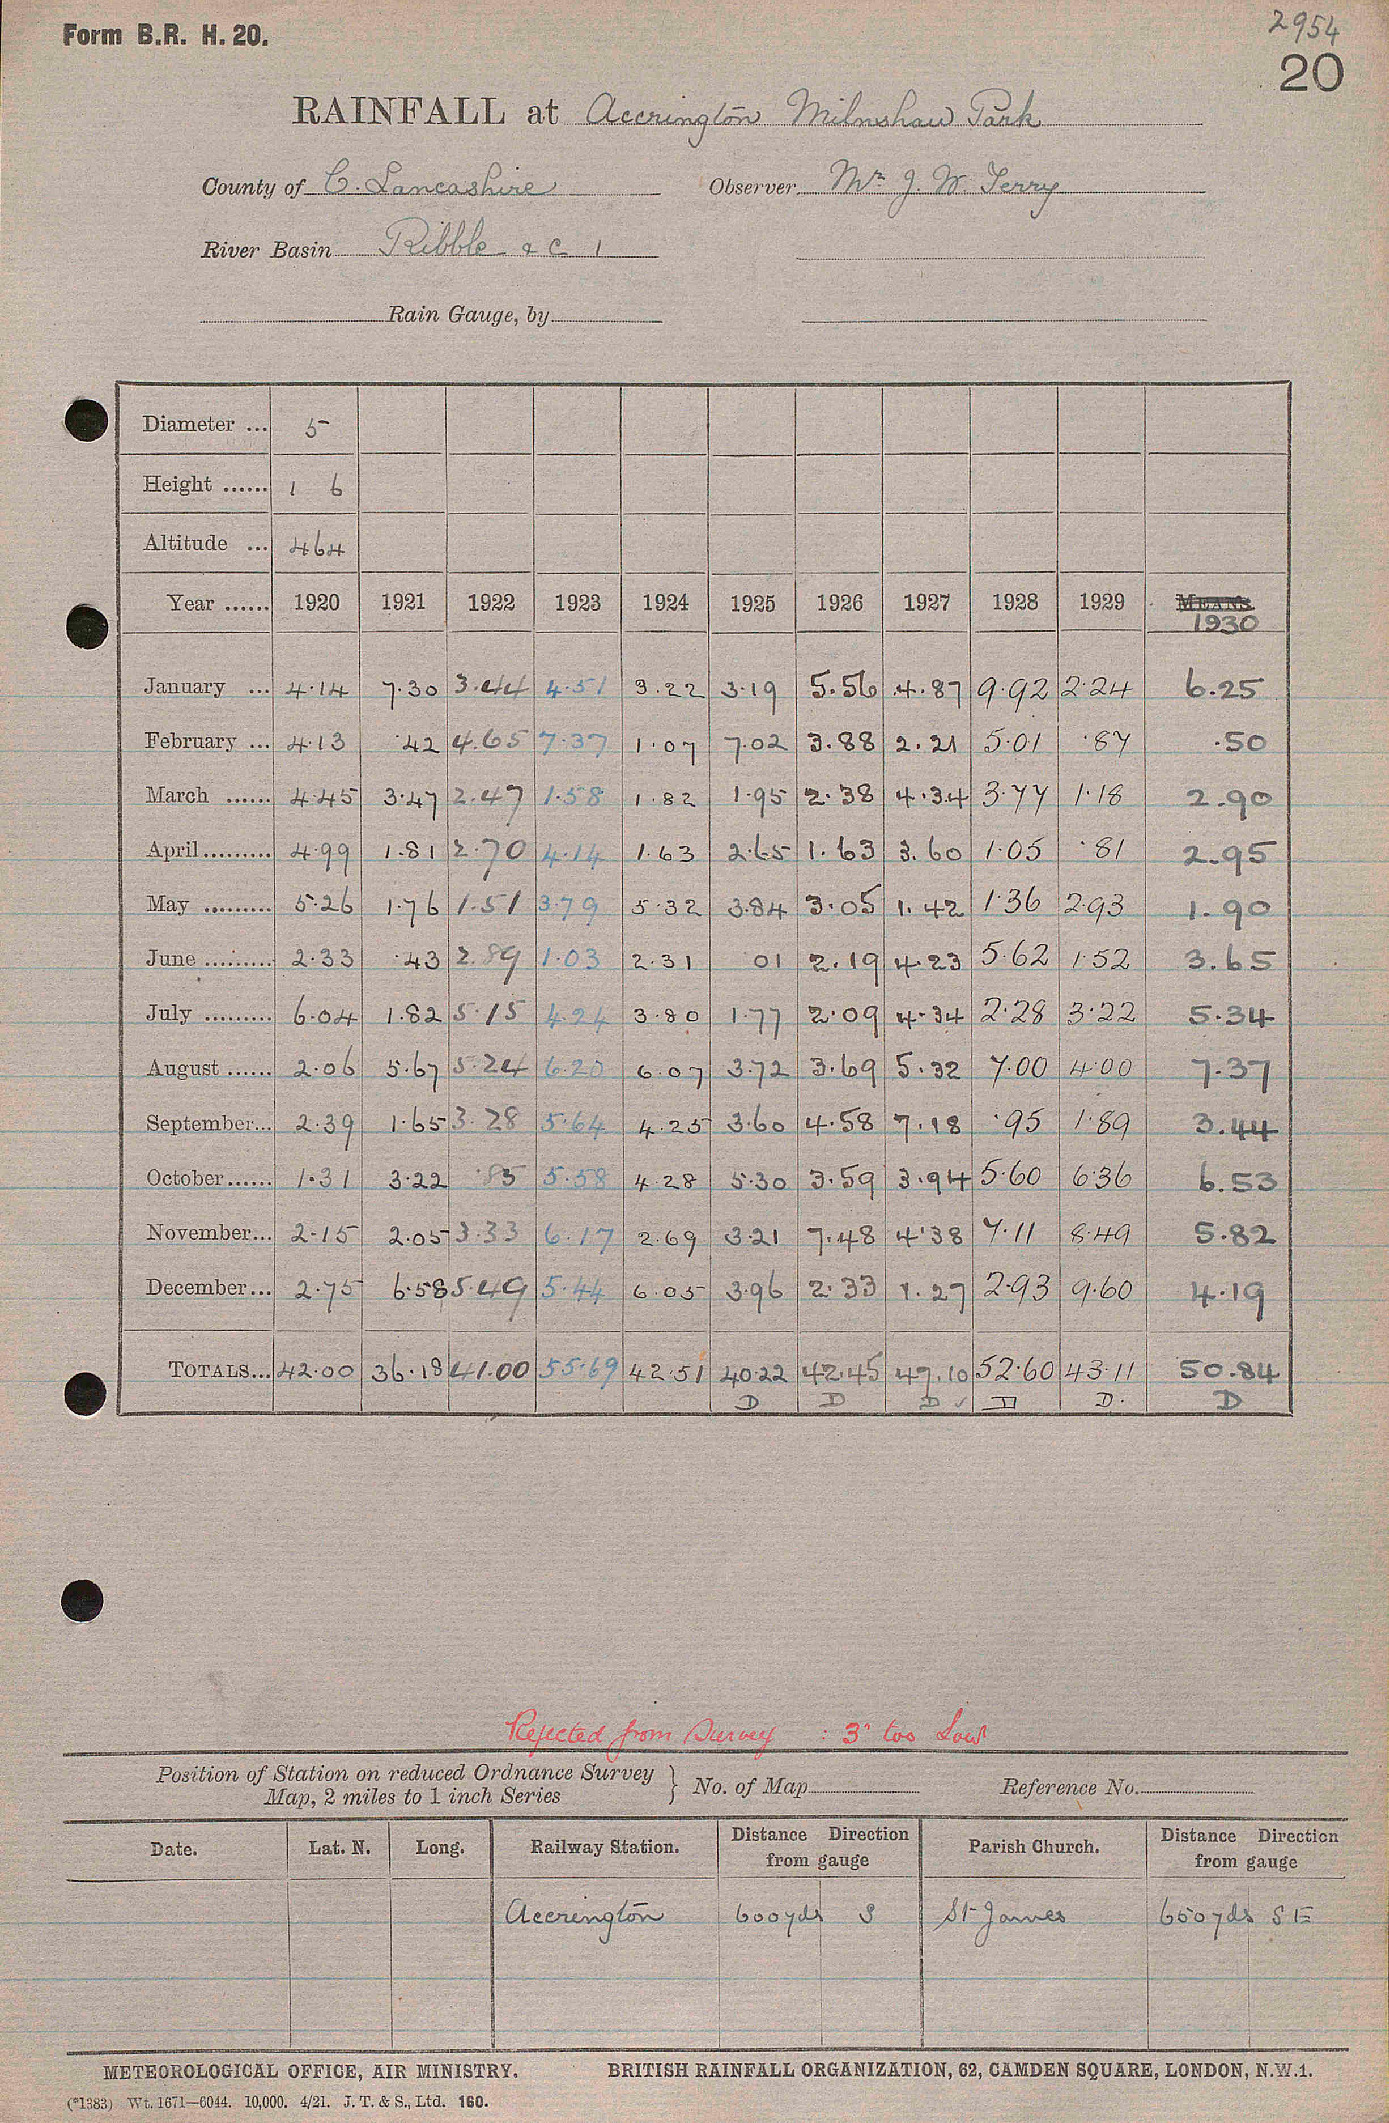 Form B.R. H. 20.
2954
20
RAINFALL at Accrington Milnshaw Park
County of C. Lancashire Observer Mr J. W. Terry
River Basin Ribble & C 1
Rain Gauge, by
Diameter ... 5
Height ...... 1 6
Altitude ... 464
Year ...... 1920 1921 1922 1923 1924 1925 1926 1927 1928 1929 MEANS 1930
January ... 4.14 7.30 3.44 4.51 3.22 3.19 5.56 4.87 9.92 2.24 6.25
February ... 4.13 .42 4.65 7.37 1.07 7.02 3.88 2.21 5.01 .87 .50
March ...... 4.45 3.47 2.47 1.58 1.82 1.95 2.38 4.34 3.77 1.18 2.90
April ......... 4.99 1.81 2.70 4.14 1.63 2.65 1.63 3.60 1.05 .81 2.95
May ......... 5.26 1.76 1.51 3.79 5.32 3.84 3.05 1.42 1.36 2.93 1.90
June ......... 2.33 .43 2.89 1.03 2.31 01 2.19 4.23 5.62 1.52 3.65
July ......... 6.04 1.82 5.15 4.24 3.80 1.77 2.09 4.34 2.28 3.22 5.34
August ...... 2.06 5.67 5.24 6.20 6.07 3.72 3.69 5.32 7.00 4.00 7.37
September... 2.39 1.65 3.28 5.64 4.25 3.60 4.58 7.18 .95 1.89 3.44
October...... 1.31 3.22 .85 5.58 4.28 5.30 3.59 3.94 5.60 6.36 6.53
November... 2.15 2.05 3.33 6.17 2.69 3.21 7.48 4.38 7.11 8.49 5.82
December... 2.75 6.58 5.49 5.44 6.05 3.96 2.33 1.27 2.93 9.60 4.19
TOTALS... 42.00 36.18 41.00 55.69 42.51 40.22 42.45 47.10 52.60 43.11 50.84
D D D ✓ D D. D
Rejected from Survey : 3" too Low
Position of Station on reduced Ordnance Survey Map, 2 miles to 1 inch Series } No. of Map Reference No.
Date. Lat. N. Long. Railway Station. Distance Direction from gauge Parish Church. Distance Direction from gauge
Accrington 600 yds S St James 650 yds S E
METEOROLOGICAL OFFICE, AIR MINISTRY. BRITISH RAINFALL ORGANIZATION, 62, CAMDEN SQUARE, LONDON, N.W.1.
(*1383) Wt. 1671—6044. 10,000. 4/21. J. T. & S., Ltd. 160.